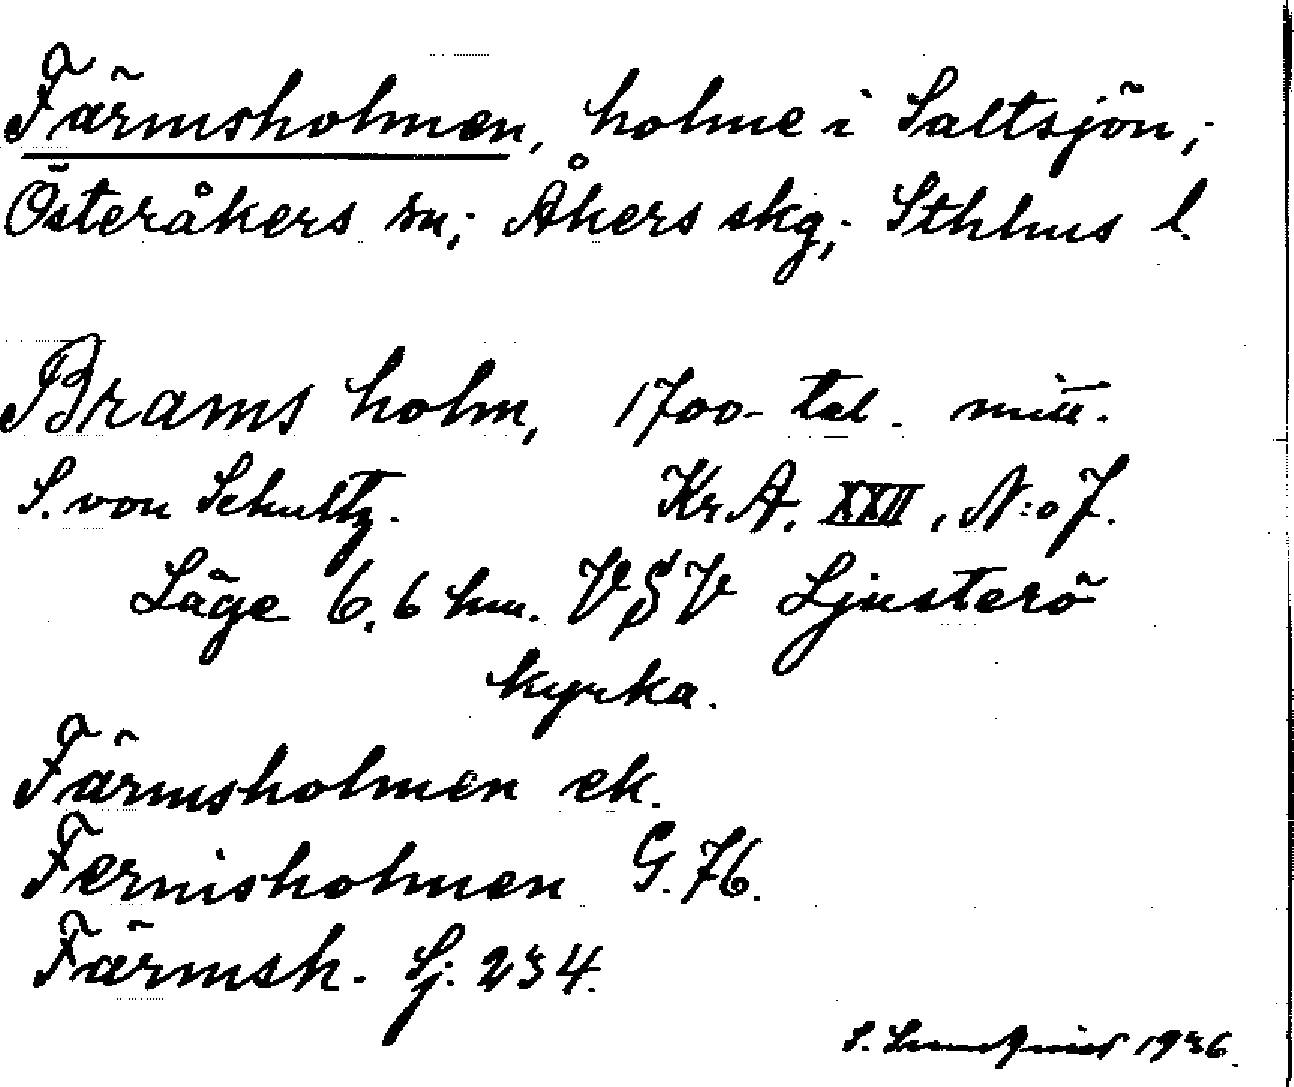 Färmsholmen, holme i Saltsjön,;
Österåkers sn,; Åkers skg,; Sthlms l.
Brams holm, 1700-tal. mitt.
S. von Schultz. Kr. A. XXII, N:o 7.
Läge 6,6 km. VSV Ljusterö
kyrka.
Färmsholmen ek.
Fernisholmen G. 76.
Färmsh. Sj. 234.
S. 1936.